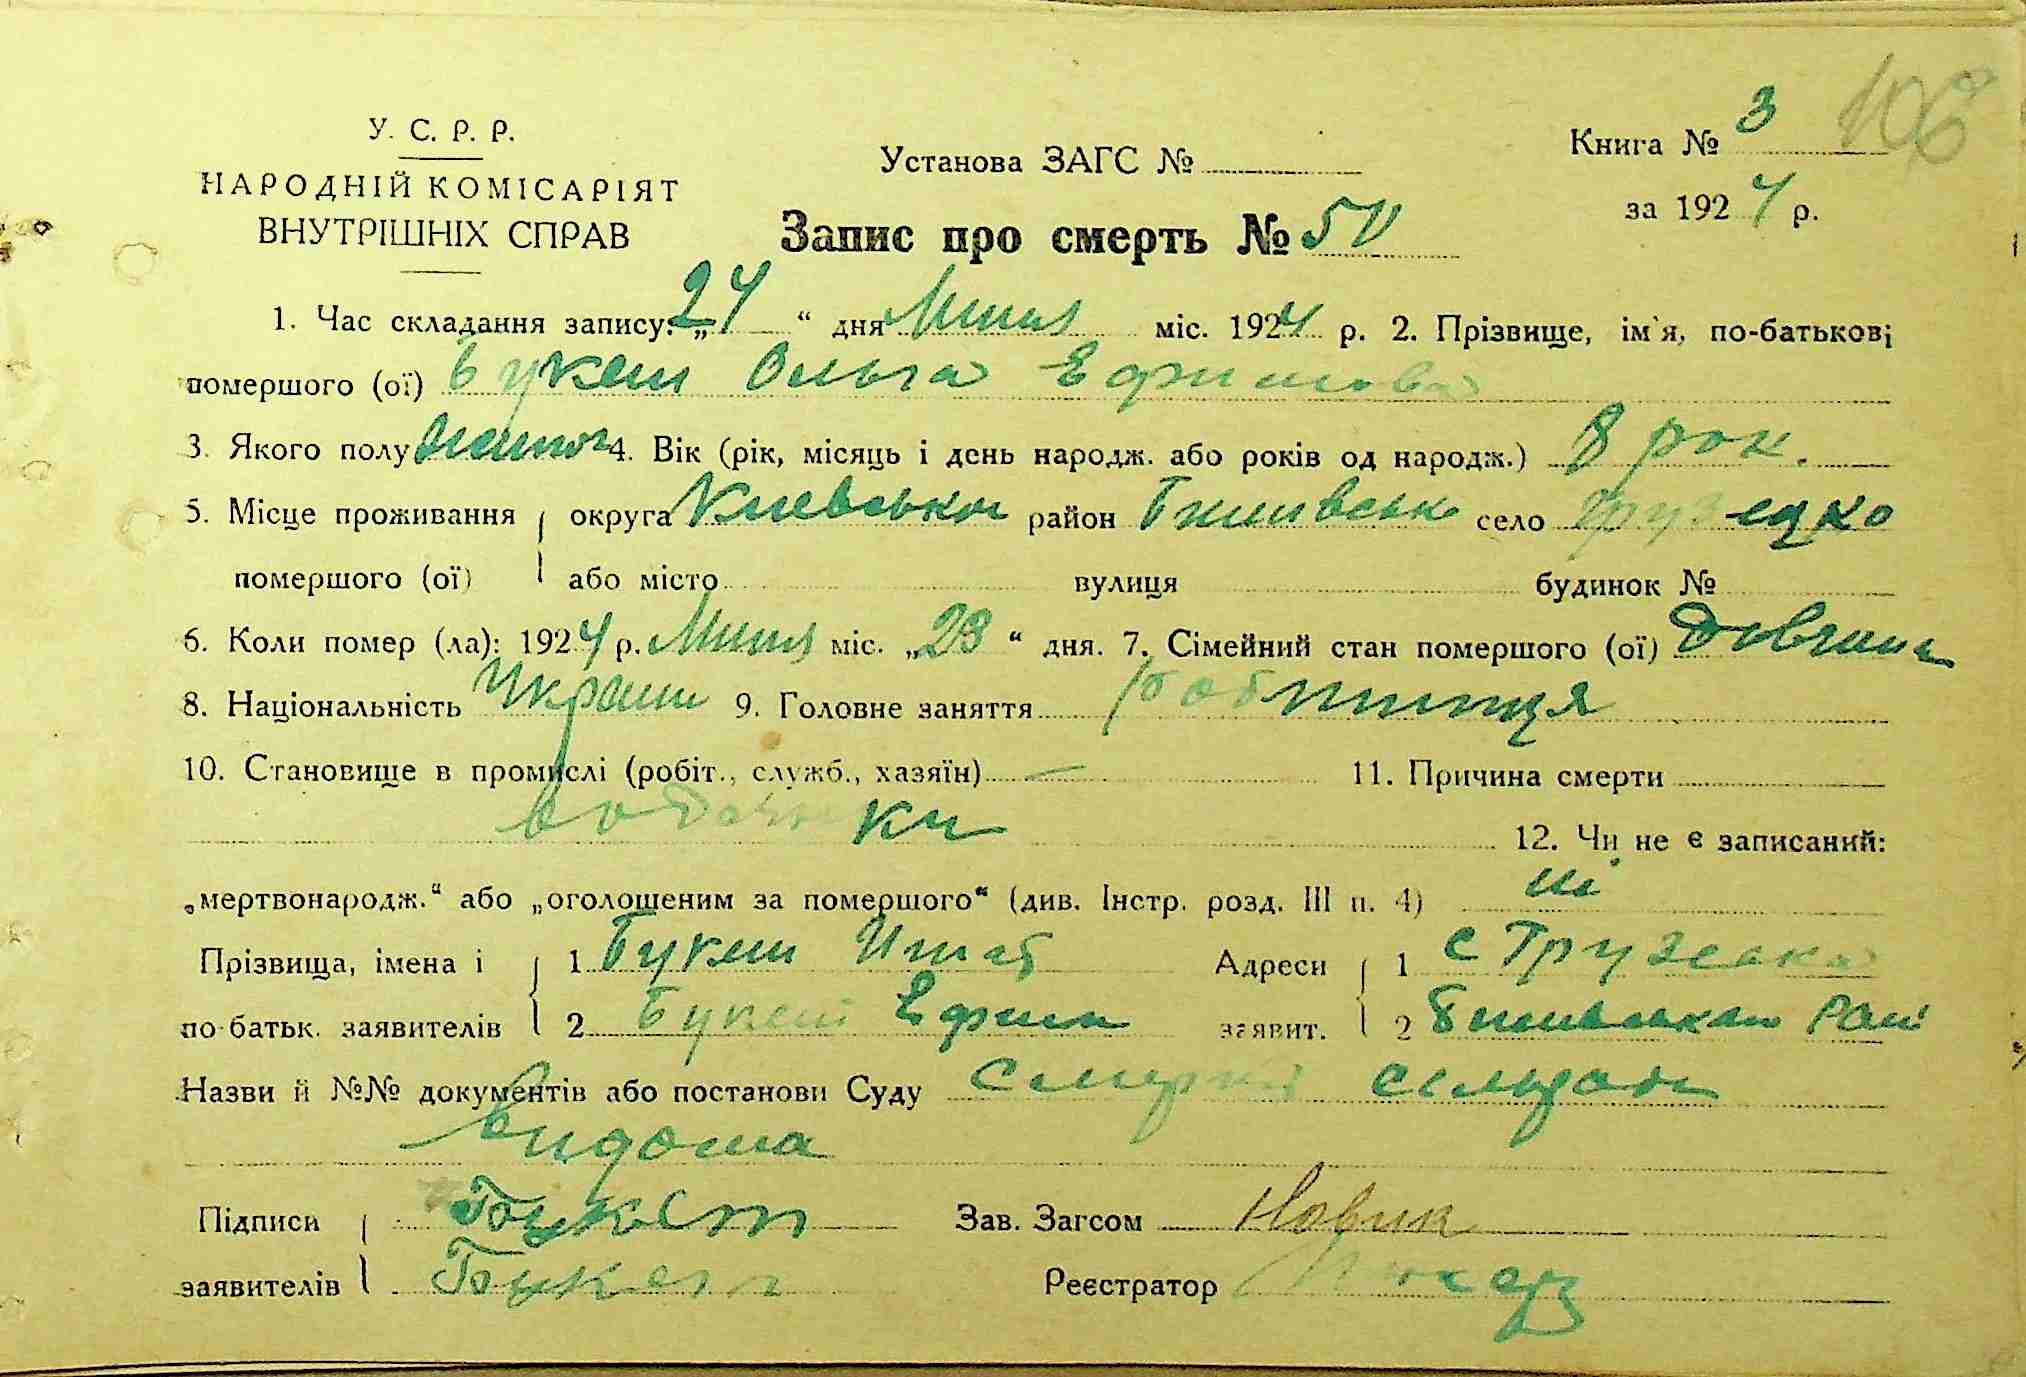 106
У. С. Р. Р.
НАРОДНІЙ КОМІСАРІЯТ
ВНУТРІШНІХ СПРАВ
Установа ЗАГС №
Книга № 3
за 1924 р.
Запис про смерть № 50
1. Час складання запису: „24“ дня Липня міс. 1924 р. 2. Прізвище, ім`я, по-батькові
помершого (ої) Букет Ольга Ефимова
3. Якого полу 4. Вік (рік, місяць і день народж. або років од народж.) 8 рок.
5. Місце проживання округа Киевської район село Грузецко
помершого (ої) або місто вулиця будинок №
6. Коли помер (ла): 1924 р. Липня міс. „23“ дня. 7. Сімейний стан помершого (ої)
8. Національність Україн 9. Головне заняття
10. Становище в промислі (робіт., служб., хазяїн) — 11. Причина смерти
12. Чи не є записаний:
„мертвонародж.“ або „оголошеним за помершого“ (див. Інстр. розд. III п. 4) ні
Прізвища, імена і 1 Букет Адреси 1 с
по-батьк. заявителів 2 Букет Ефим заявит. 2
Назви й №№ документів або постанови Суду Смерть
видома
Підписи Букет Зав. Загсом Новик
заявителів Букет Реєстратор